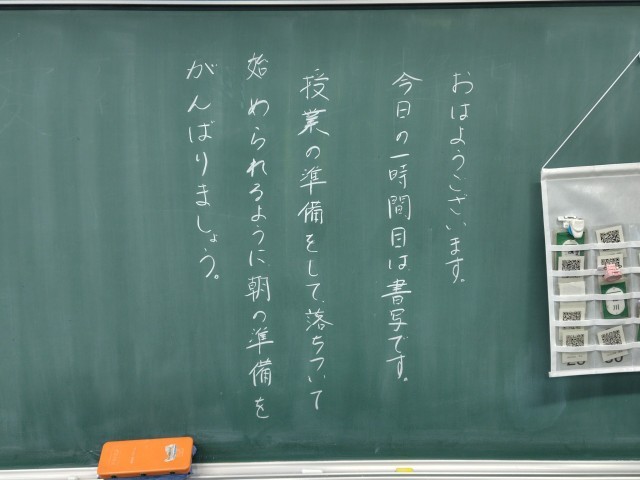 おはようございます。
今日の一時間目は、書写です。
授業の準備をして、落ちついて
始められるように、朝の準備を
がんばりましょう。